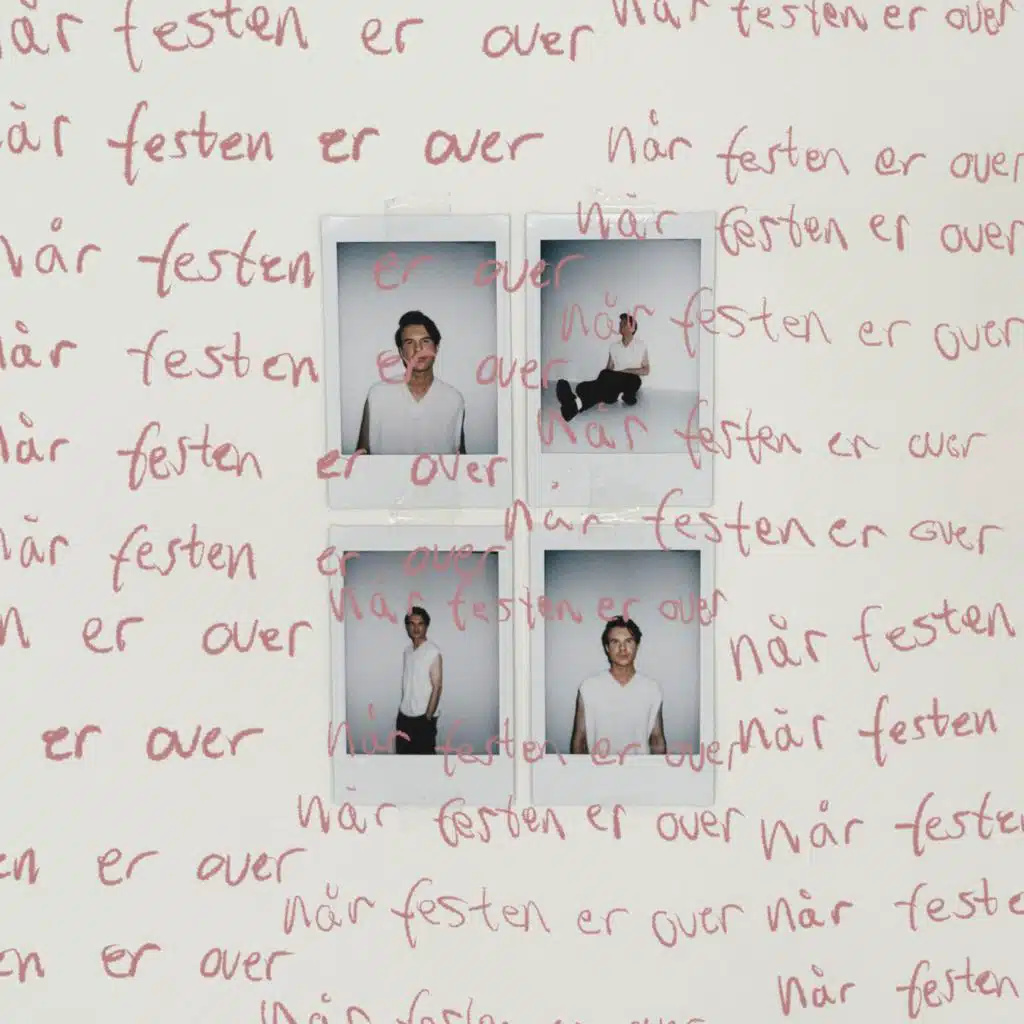 år festen er over
når festen er over
år festen er over
når festen er over
når festen er over
når festen er over
når festen er over
når festen er over
når festen er over
når festen er over
når festen er over
når festen er over
når festen er over
n er over
når festen
er over
når festen er over
når festen
når festen er over
når festen
en er over
når festen er over
når feste
en er over
når festen